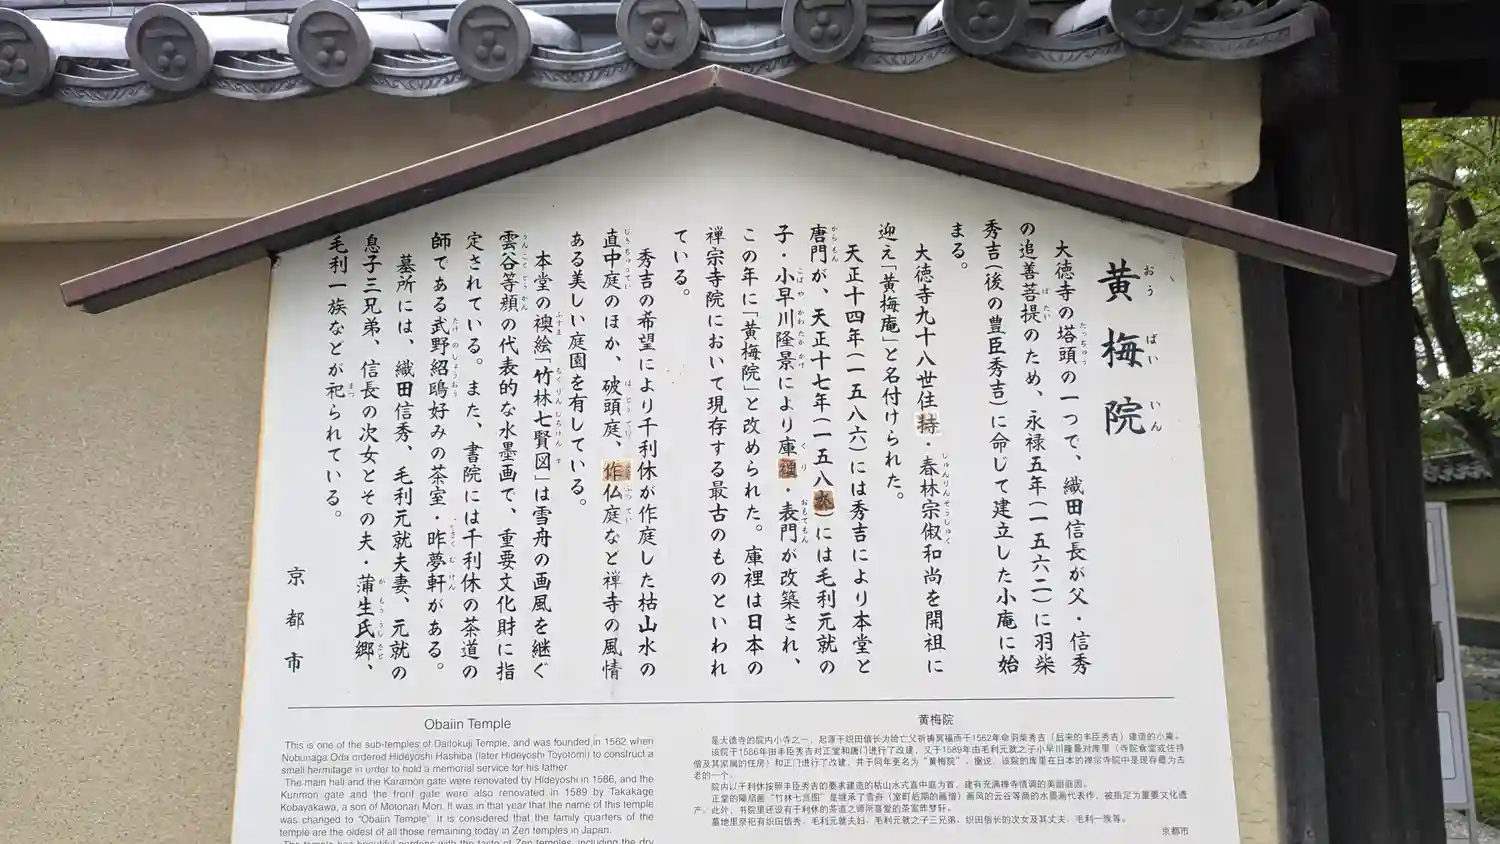 黄梅院
おうばいいん
大徳寺の塔頭の一つで、織田信長が父・信秀
の追善菩提のため、永禄五年(一五六二)に羽柴
秀吉(後の豊臣秀吉)に命じて建立した小庵に始
まる。
大徳寺九十八世住持・春林宗俶和尚を開祖に
迎え「黄梅庵」と名付けられた。
天正十四年(一五八六)には秀吉により本堂と
唐門が、天正十七年(一五八九)には毛利元就の
子・小早川隆景により庫裡・表門が改築され、
この年に「黄梅院」と改められた。庫裡は日本の
禅宗寺院において現存する最古のものといわれ
ている。
秀吉の希望により千利休が作庭した枯山水の
直中庭のほか、破頭庭、作仏庭など禅寺の風情
ある美しい庭園を有している。
本堂の襖絵「竹林七賢図」は雪舟の画風を継ぐ
雲谷等顔の代表的な水墨画で、重要文化財に指
定されている。また、書院には千利休の茶道の
師である武野紹鴎好みの茶室・昨夢軒がある。
墓所には、織田信秀、毛利元就夫妻、元就の
息子三兄弟、信長の次女とその夫・蒲生氏郷、
毛利一族などが祀られている。
京都市
Obaiin Temple
This is one of the sub-temples of Daitokuji Temple, and was founded in 1562 when
Nobunaga Oda ordered Hideyoshi Hashiba (later Hideyoshi Toyotomi) to construct a
small hermitage in order to hold a memorial service for his father.
The main hall and the Karamon gate were renovated by Hideyoshi in 1586, and the
Kunmon gate and the front gate were also renovated in 1589 by Takakage
Kobayakawa, a son of Motonari Mori. It was in that year that the name of this temple
was changed to "Obaiin Temple". It is considered that the family quarters of the
temple are the oldest of all those remaining today in Zen temples in Japan.
The temple has beautiful gardens with the taste of Zen temples, including the dry
黄梅院
是大德寺的院内小寺之一，起源于织田信长为给亡父祈祷冥福而于1562年命羽柴秀吉（后来的丰臣秀吉）建造的小庵。
该院于1586年由丰臣秀吉对正堂和唐门进行了改建，又于1589年由毛利元就之子小早川隆景对库里（寺院食堂或住持
僧及其家属的住房）和正门进行了改建，并于同年更名为“黄梅院”。据说，该院的库里在日本的禅宗寺院中是现存最为古
老的一个。
院内以千利休按照丰臣秀吉的要求建造的枯山水式直中庭为首，建有充满禅寺情调的美丽庭园。
正堂的隔扇画“竹林七贤图”是继承了雪舟（室町后期的画僧）画风的云谷等颜的水墨画代表作，被指定为重要文化遗
产。此外，书院里还设有千利休的茶道之师所喜爱的茶室昨梦轩。
墓地里祭祀有织田信秀、毛利元就夫妇、毛利元就之子三兄弟、织田信长的次女及其丈夫、毛利一族等。
京都市